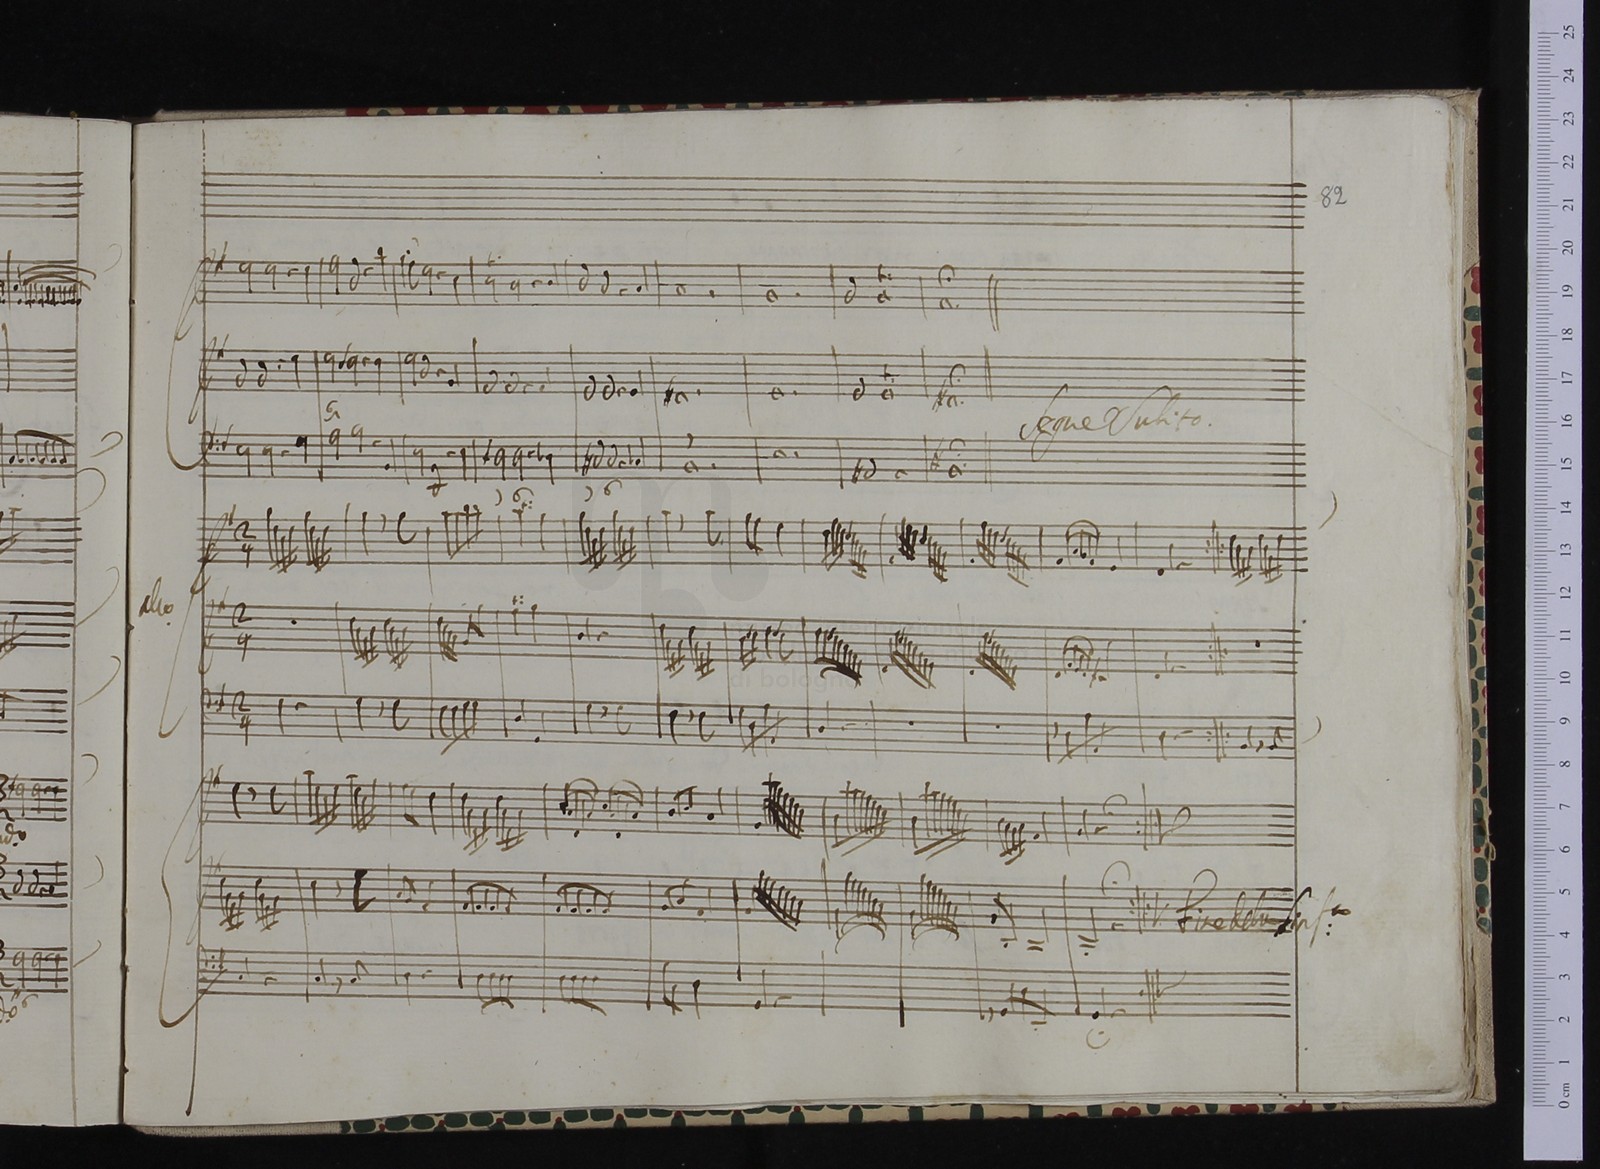 82
Segue Subito.
6
6
6
2
4
Allo
2
4
di bologna
2
4
Fine della Sinf.a
25
24
23
22
21
20
19
18
17
16
15
14
13
12
11
10
9
8
7
6
5
4
3
2
1
0 cm